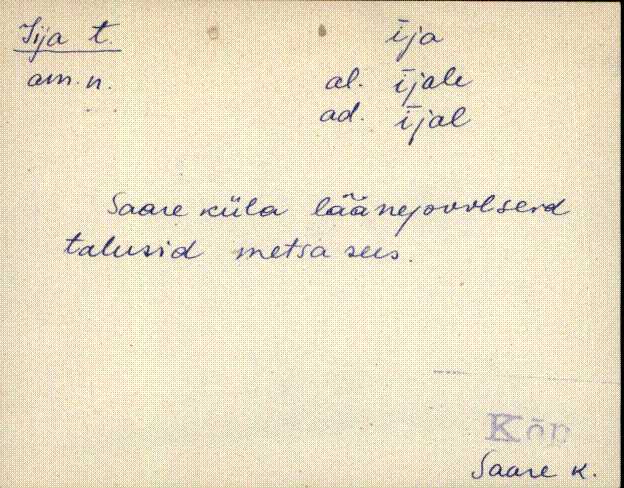 Iija t. īja
am. n. al. ījale
ad. ījal
Saare küla läänepoolseid
talusid metsa sees.
Kõp
Saare k.